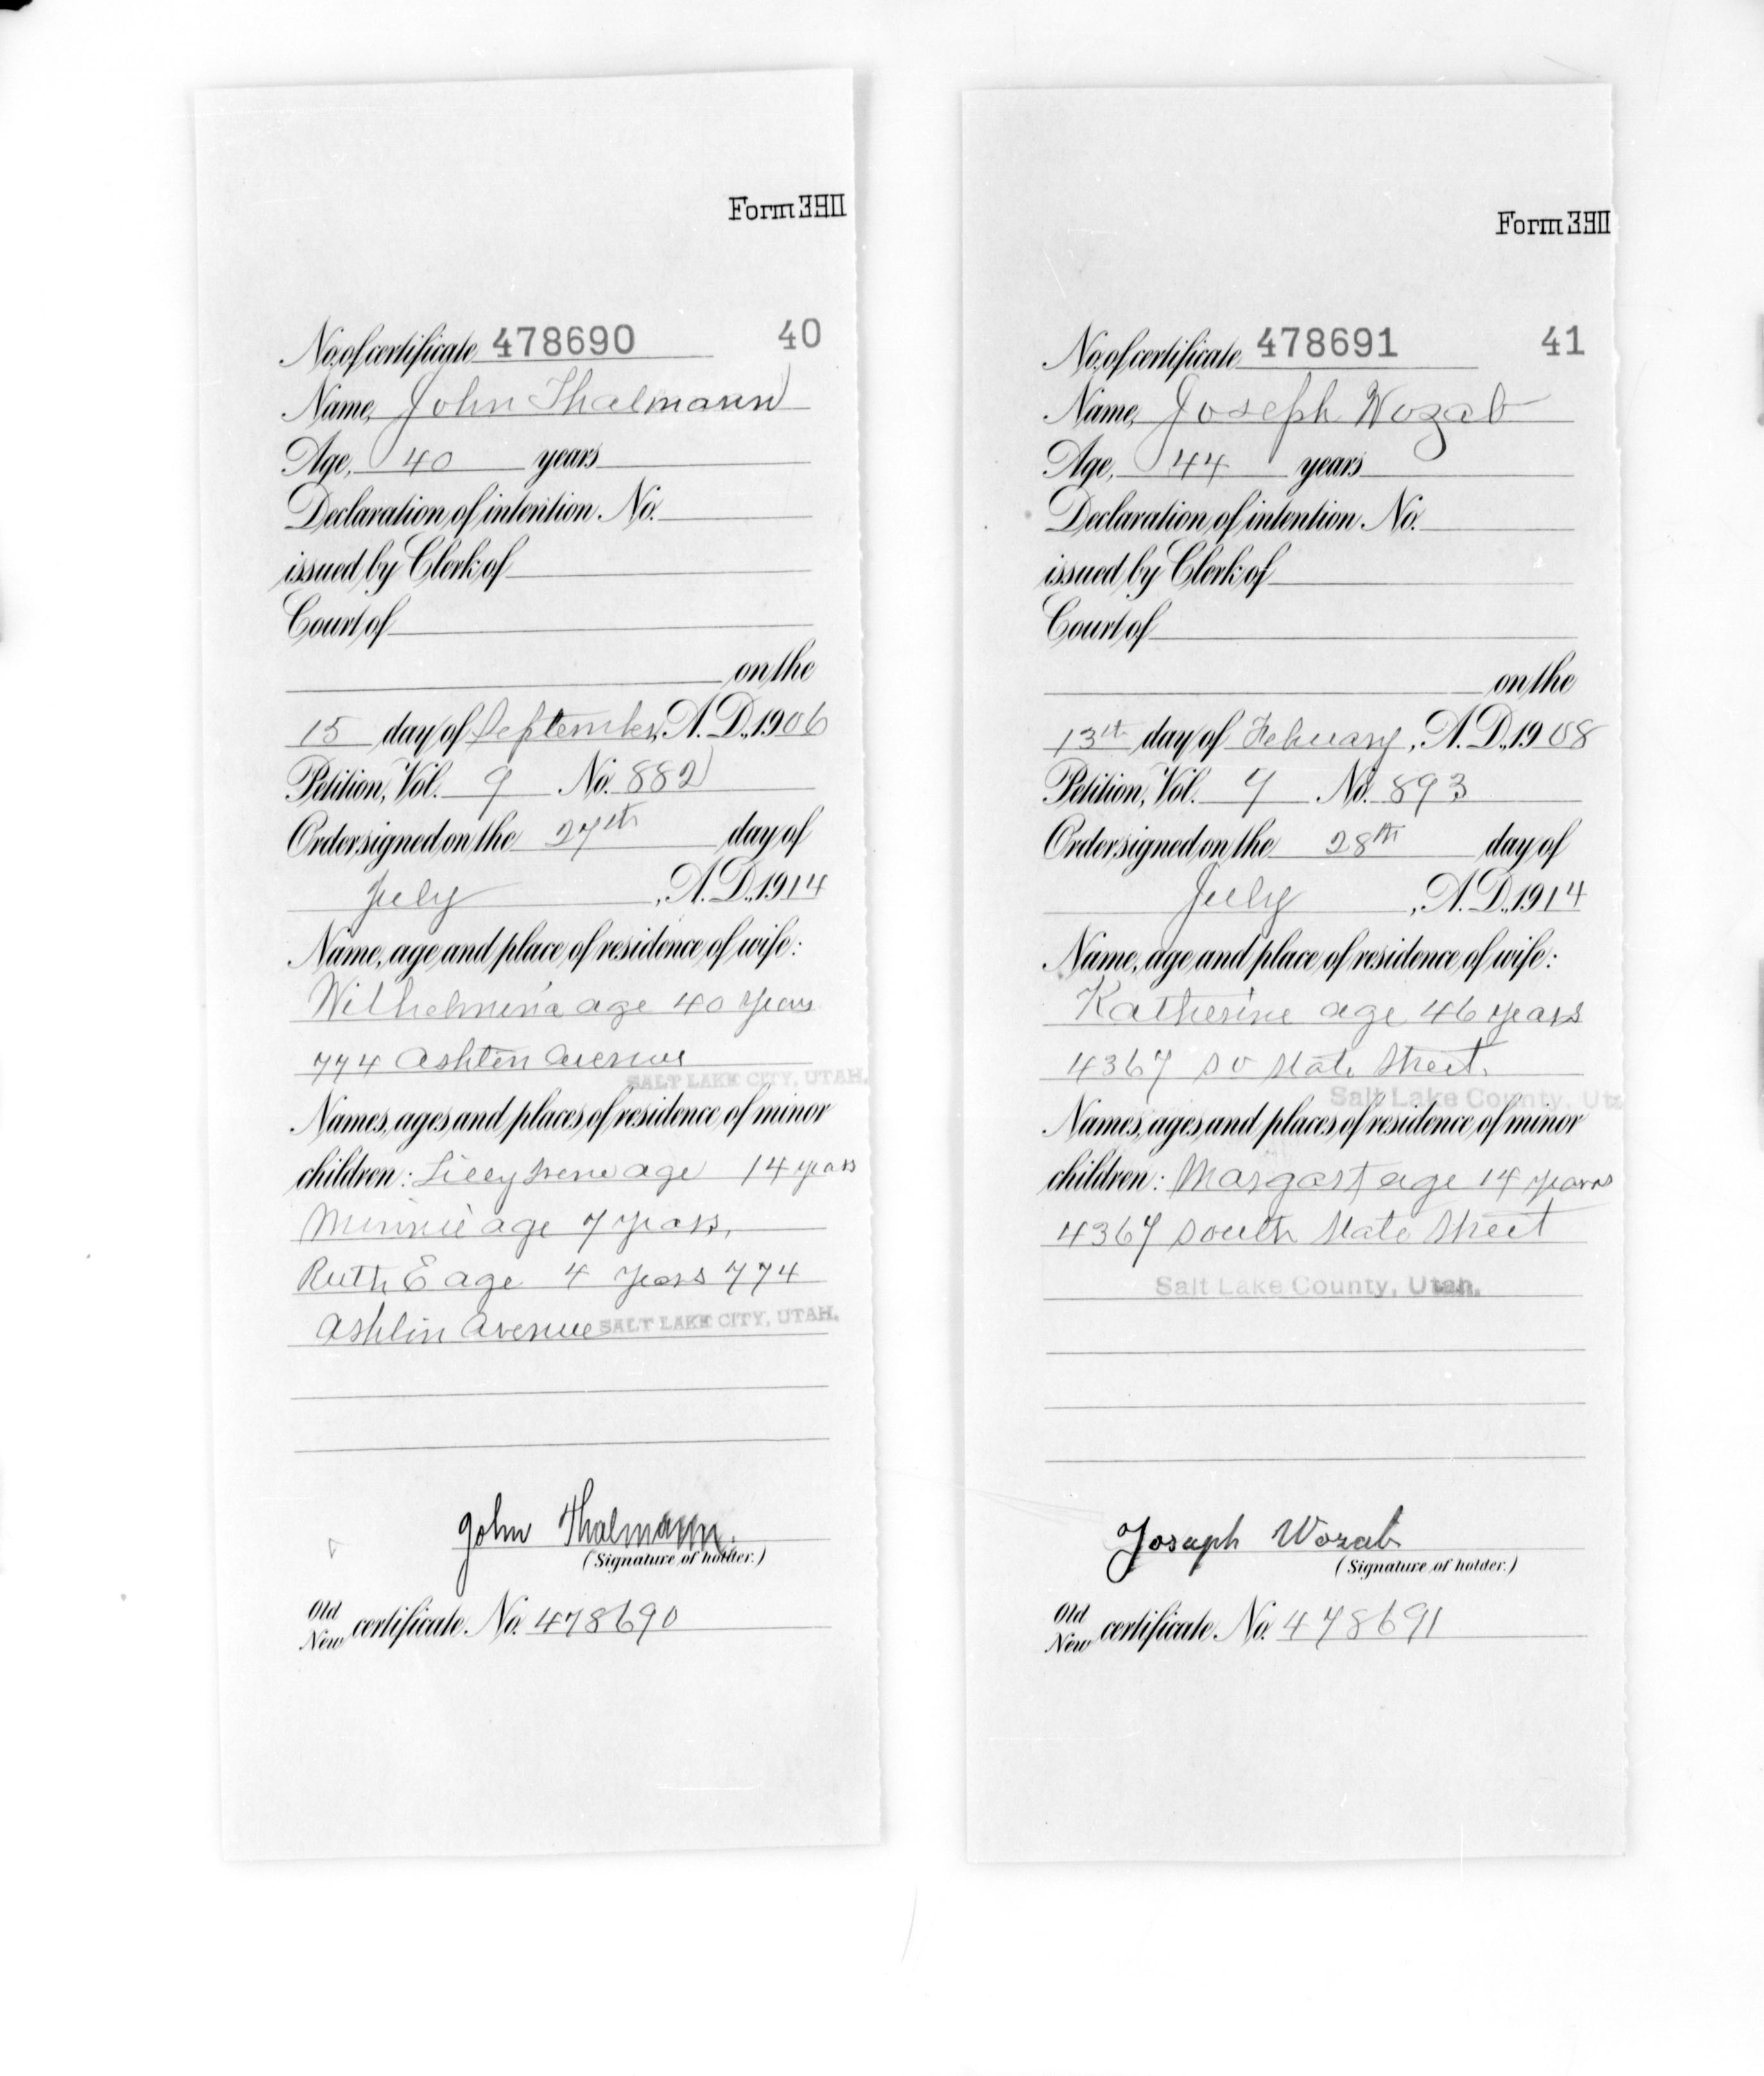 Form 390
No. of certificate 478690 40
Name, John Thalmann
Age, 40 years
Declaration of intention No.
issued by Clerk of
Court of
on the
15 day of September, A.D., 1906
Petition, Vol. 9 No. 882
Order signed on the 27th day of
July, A.D., 1914
Name, age and place of residence of wife:
Wilhelmina age 40 years
774 Ashton Avenue
SALT LAKE CITY, UTAH.
Names, ages and places of residence of minor
children: Lilly Irene age 14 years
Minnie age 7 years,
Ruth E age 4 years 774
Ashlin Avenue SALT LAKE CITY, UTAH.
John Thalmann.
(Signature of holder.)
Old
New certificate No. 478690
Form 390
No. of certificate 478691 41
Name, Joseph Wozab
Age, 44 years
Declaration of intention No.
issued by Clerk of
Court of
on the
13th day of February, A.D., 1908
Petition, Vol. 9 No. 893
Order signed on the 28th day of
July, A.D., 1914
Name, age and place of residence of wife:
Katherine age 46 years
4367 So State Street.
Salt Lake County, Uta
Names, ages and places of residence of minor
children: Margart age 14 years
4367 South State Street
Salt Lake County, Utah.
Joseph Wozab
(Signature of holder.)
Old
New certificate No. 478691